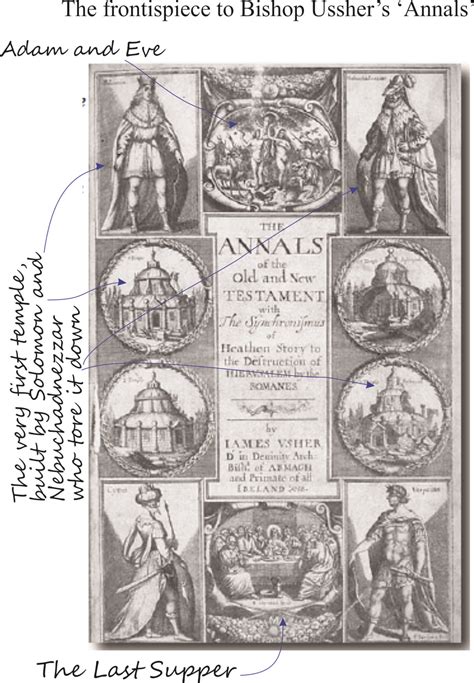 The frontispiece to Bishop Ussher's 'Annals'
Adam and Eve
The very first temple,
built by Solomon and
Nebuchadnezzar
who tore it down
THE
ANNALS
of the
Old and New
TESTAMENT
with
The Synchronismus
of
Heathen Story to
the Destruction of
HIERVSALEM by the
ROMANES
by
IAMES VSHER
Dr in Deuinity Arch-
Bish: of ARMAGH
and Primate of all
IRELAND
The Last Supper